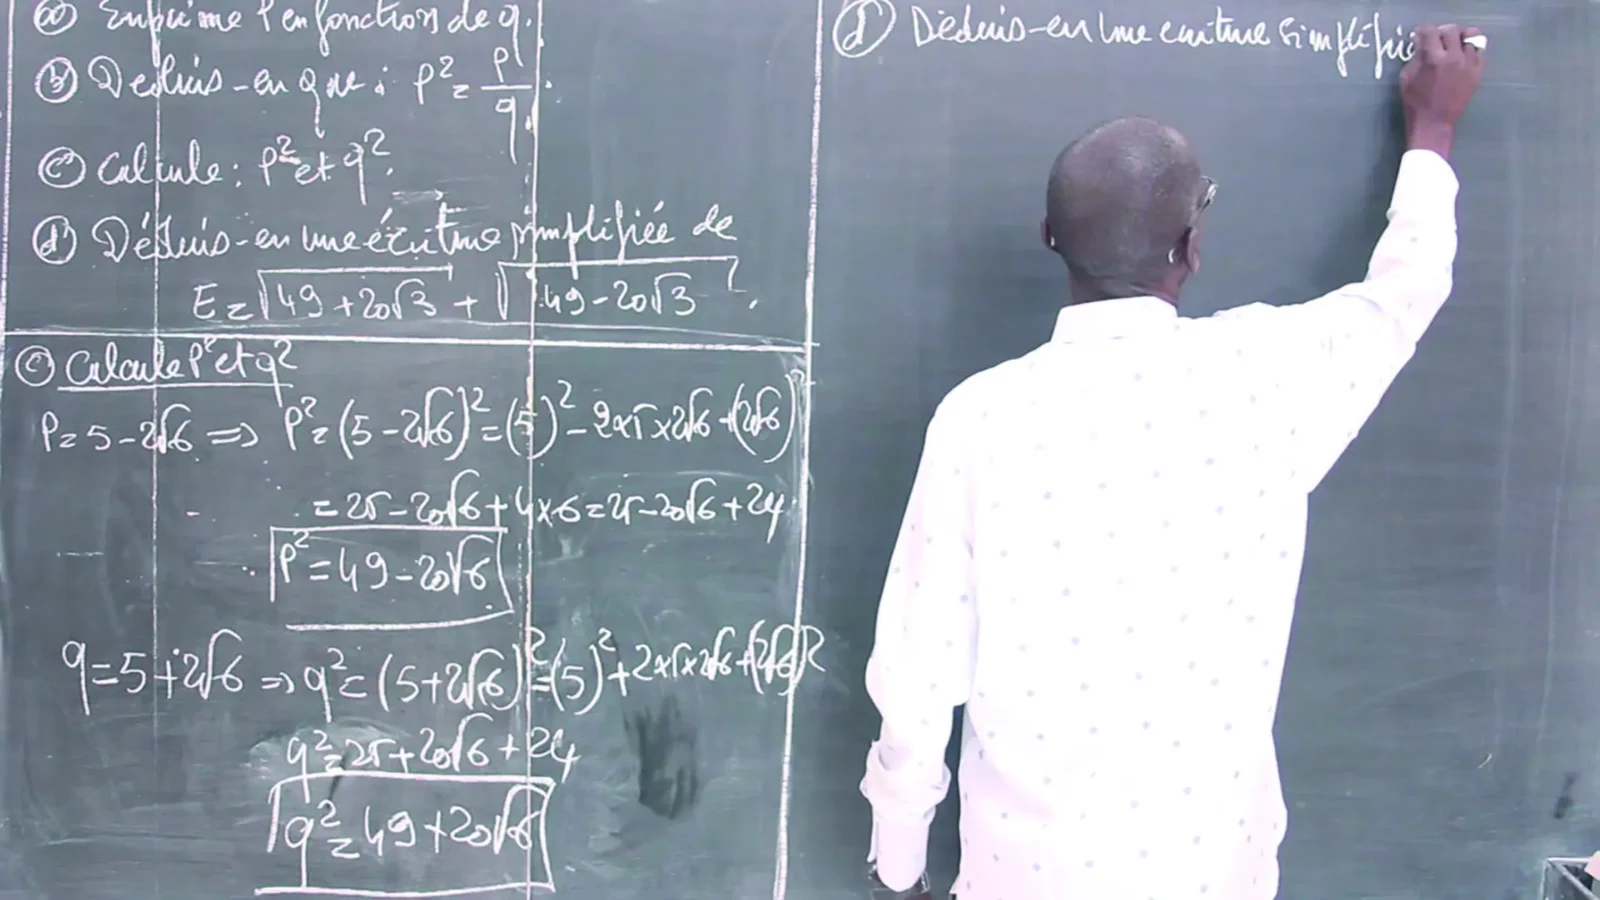 a) Exprime P en fonction de q.
b) Déduis-en que : P² = P/q.
c) Calcule : P² et q².
d) Déduis-en une écriture simplifiée de
E = √49 + 20√3 + √49 - 20√3.
c) Calcule P² et q²
P = 5 - 2√6 ⇒ P² = (5 - 2√6)² = (5)² - 2×5×2√6 + (2√6)²
= 25 - 20√6 + 4×6 = 25 - 20√6 + 24
P² = 49 - 20√6
q = 5 + 2√6 ⇒ q² = (5 + 2√6)² = (5)² + 2×5×2√6 + (2√6)²
q² = 25 + 20√6 + 24
q² = 49 + 20√6
d) Déduis-en une écriture simplifié